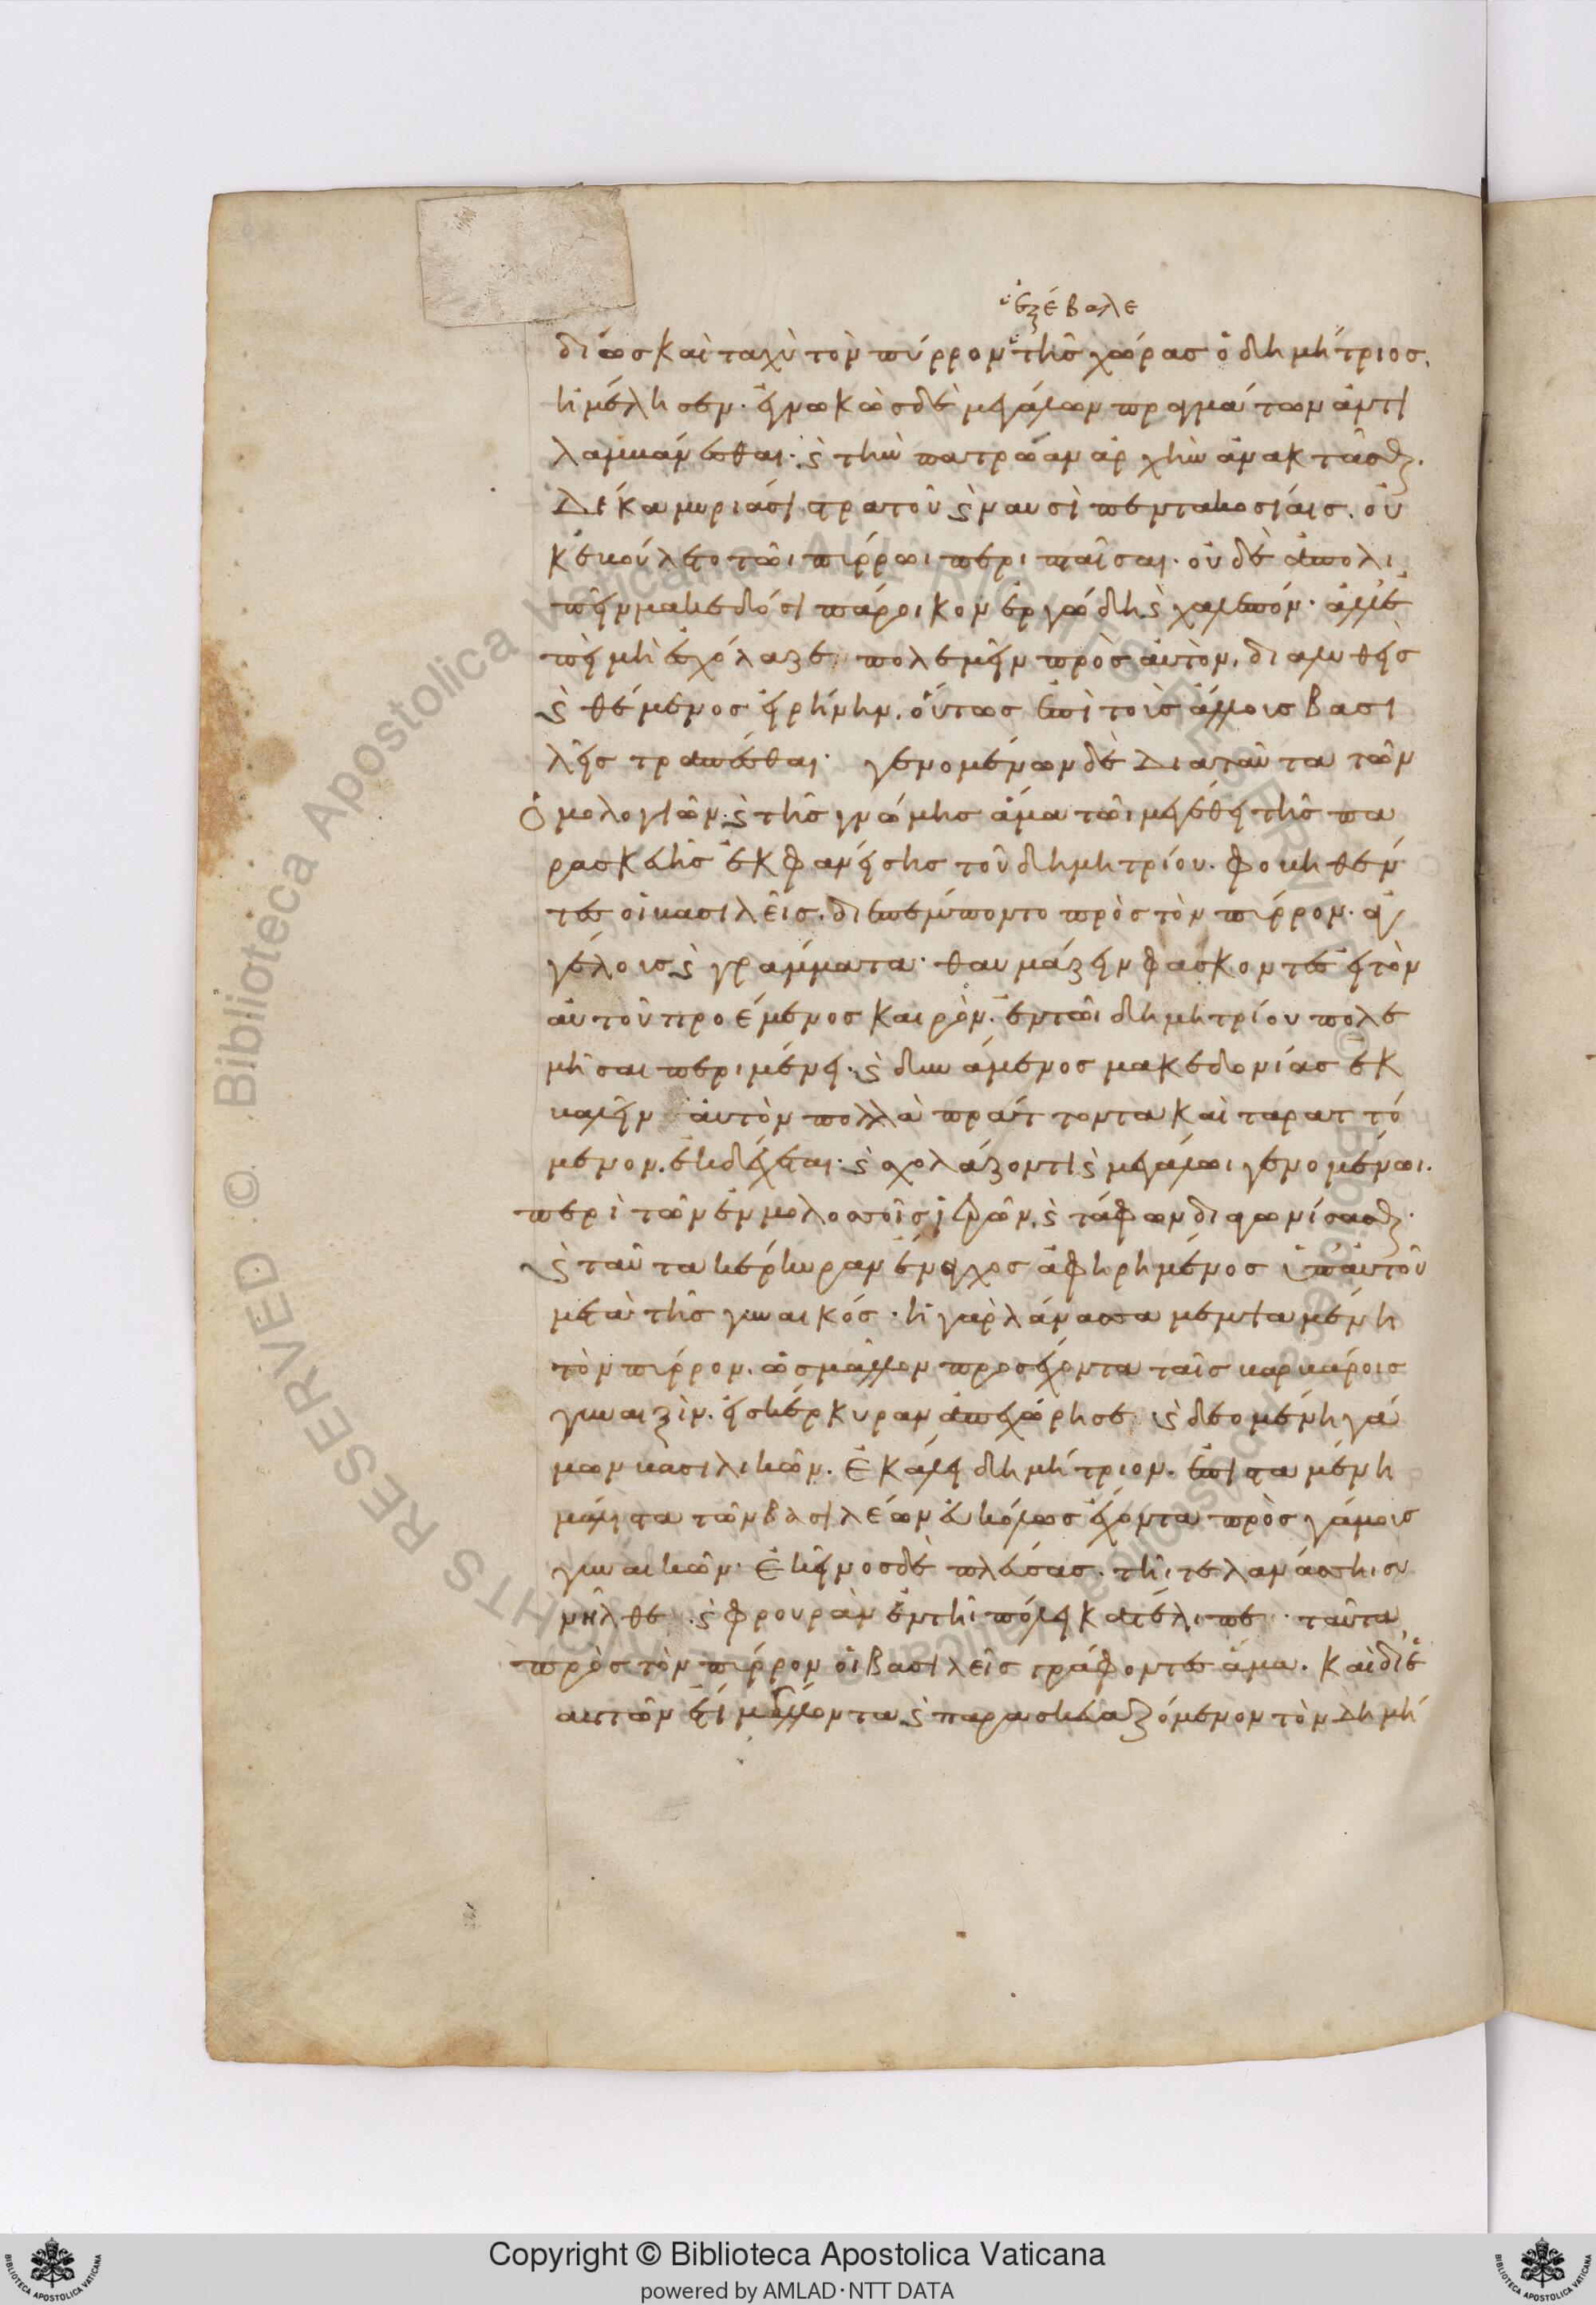 ἐξέβαλε
δίως καὶ ταχὺ τὸν πύρρον τῆς χώρας ὁ δημήτριος,
ἠμέλησεν. ἐγνωκὼς δὲ μεγάλων πραγμάτων ἀντι
λαμβάνεσθαι. ϗ τὴν πατρώαν ἀρχὴν ἀνακτᾶσθ(αι).
Δέκα μυριάσι στρατοῦ ϗ ναυσὶ πεντακοσίαις. οὐ
κ ἐβούλετο τῶι πύρρωι περιπταῖσαι. οὐδὲ ἀπολι
πεῖν μακεδόσι πάροικον ἐργώδη ϗ χαλεπόν. ἀλλ' ἐ
πεὶ μὴ ἐσχόλαζε πολεμεῖν πρὸς αὐτὸν, διαλυθεὶς
ϗ θέμενος εἰρήνην. οὕτως ἐπὶ τοὺς ἄλλους βασι
λεῖς τραπέσθαι. γενομένων δὲ διαταῦτα τῶν
ὁμολογιῶν. ϗ τῆς γνώμης ἅμα τῶι μεγέθει τῆς πα
ρασκευῆς ἐκφανείσης τοῦ δημητρίου. φοβηθέν
τες οἱ βασιλεῖς. διεπέμποντο πρὸς τὸν πύρρον. ἀγ
γέλους ϗ γράμματα. θαυμάζειν φάσκοντες εἰ τὸν
αὐτοῦ προέμενος καιρὸν. ἐν τῶι δημητρίου πολε
μῆσαι περιμένει. ϗ δυνάμενος μακεδονίας ἐκ
βαλεῖν αὐτὸν πολλὰ πράττοντα καὶ ταραττό
μενον. ἐκδέχεται. ϗ σχολάζοντι ϗ μεγάλωι γενομένωι.
περὶ τῶν ἐν μολοσσοῖς ἱερῶν, ϗ τάφων διαγωνίσασθ(αι).
ϗ ταῦτα κέρκυραν ἔναγχος ἀφηρημένος ὑπ' αὐτοῦ
μετὰ τῆς γυναικός. ἡ γὰρ λάνασσα μεμψαμένη
τὸν πύρρον. ὡς μᾶλλον προσέχοντα ταῖς βαρβάροις
γυναιξὶν. εἰς κέρκυραν ἀπεχώρησε. ϗ δεομένη γά
μων βασιλικῶν. ἐκάλει δημήτριον. ἐπισταμένη
μάλιστα τῶν βασιλέων εὐκόλως ἔχοντα πρὸς γάμους
γυναικῶν. ἐκεῖνος δὲ πλεύσας. τῆι τε λανάσσηι συ
νῆλθε. ϗ φρουρὰν ἐν τῆι πόλει κατέλιπε. ταῦτα
πρὸς τὸν πύρρον οἱ βασιλεῖς γράφοντες ἅμα. καὶ δι' ἑ
αυτῶν ἔτι μέλλοντα ϗ παρασκευαζόμενον τὸν δημή
Copyright © Biblioteca Apostolica Vaticana
powered by AMLAD·NTT DATA